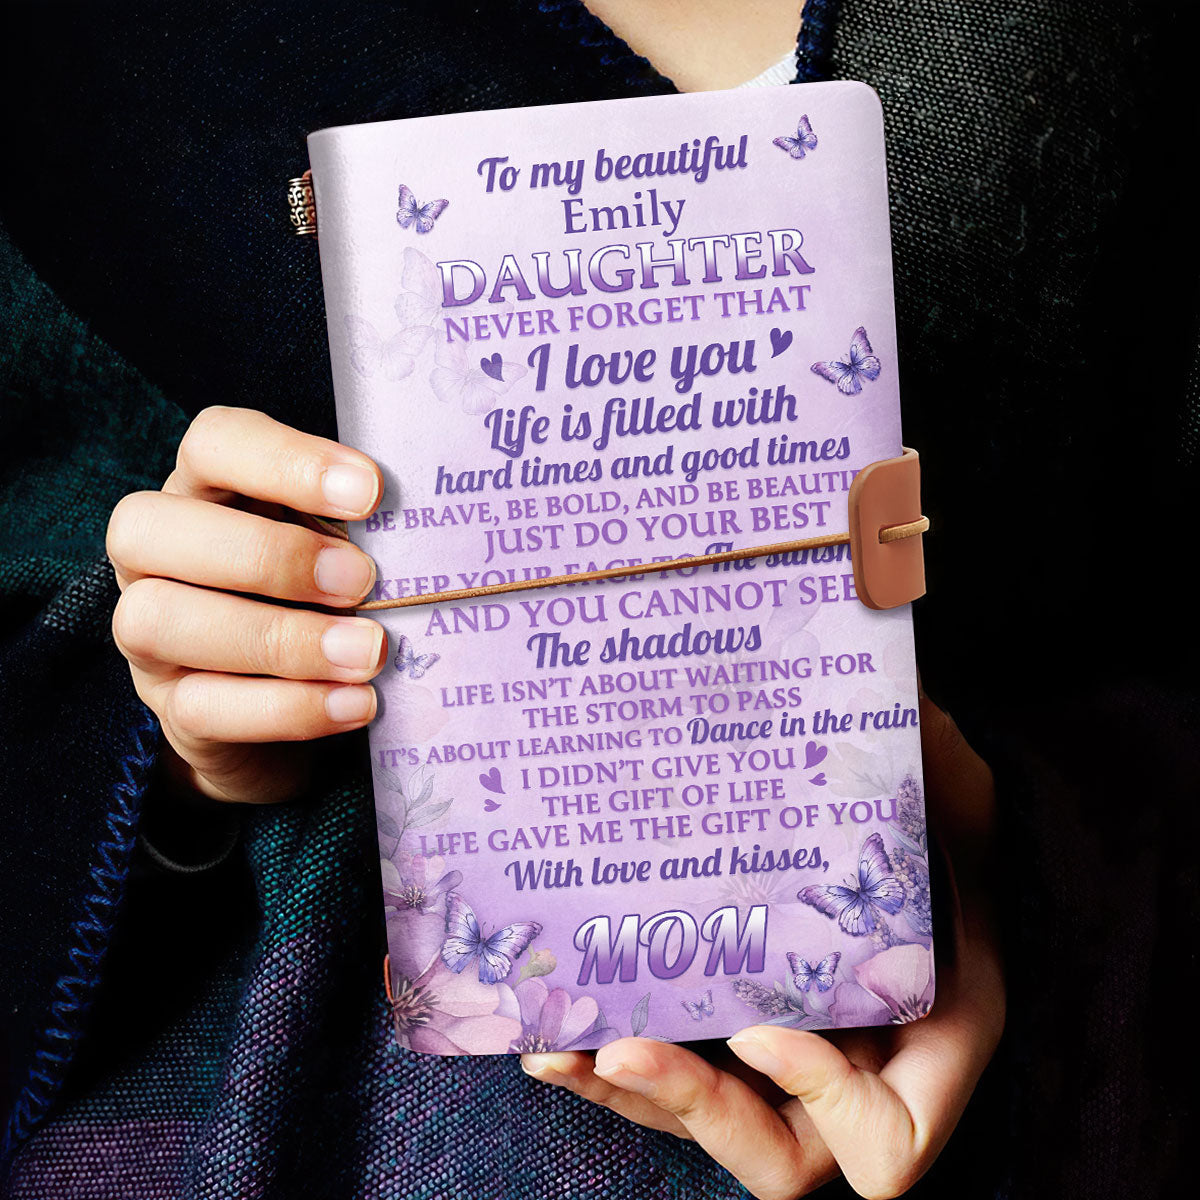 To my beautiful
Emily
DAUGHTER
NEVER FORGET THAT
I love you
Life is filled with
hard times and good times
BE BRAVE, BE BOLD, AND BE BEAUTI
JUST DO YOUR BEST
KEEP YOUR FACE TO The sunsh
AND YOU CANNOT SEE
The shadows
LIFE ISN'T ABOUT WAITING FOR
THE STORM TO PASS
IT'S ABOUT LEARNING TO Dance in the rain
I DIDN'T GIVE YOU
THE GIFT OF LIFE
LIFE GAVE ME THE GIFT OF YOU
With love and kisses,
MOM